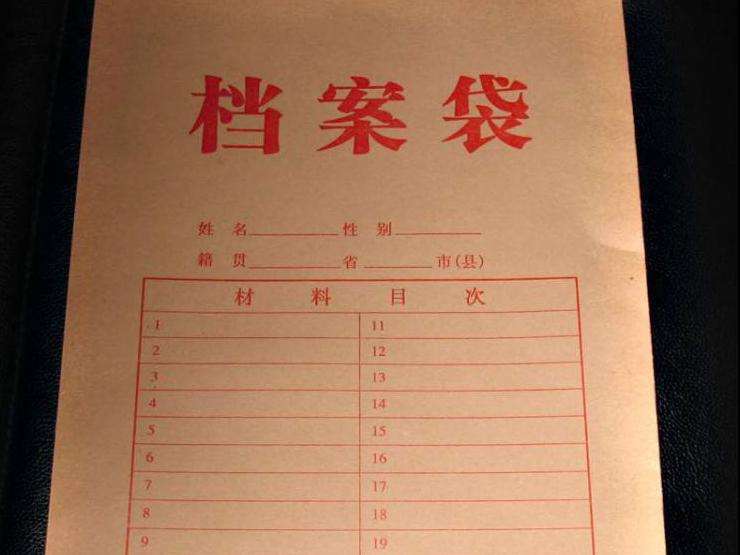 档案袋
姓 名________性 别________
籍 贯________省________市(县)
材 料 目 次
1 11
2 12
3 13
4 14
5 15
6 16
7 17
8 18
9 19